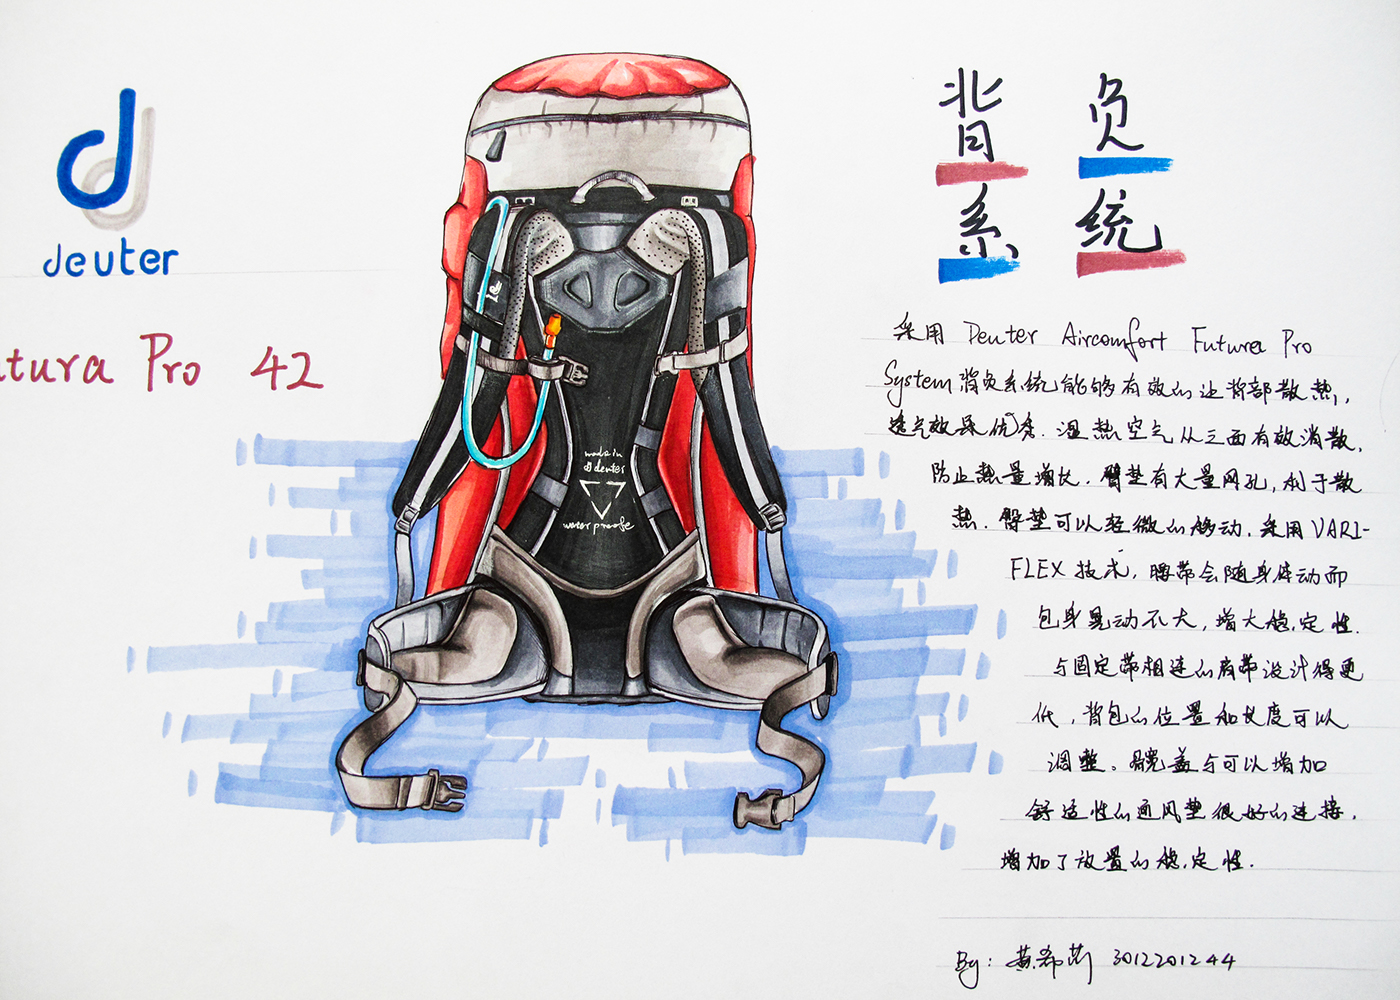 deuter
utura Pro 42
made in
deuter
waterproofe
背负
系统
采用 Deuter Aircomfort Futura Pro
System背负系统能够有效的让背部散热,
透气效果优秀.湿热空气从三面有效消散,
防止热量增长.臀垫有大量网孔,利于散
热.臀垫可以轻微的移动.采用VARI-
FLEX技术,腰带会随身体动而
包身晃动不大,增大稳定性.
与固定带相连的肩带设计得更
低,背包的位置和长度可以
调整。髋盖与可以增加
舒适性的通风垫很好的连接.
增加了放置的稳定性.
By: 黄希 3012201244